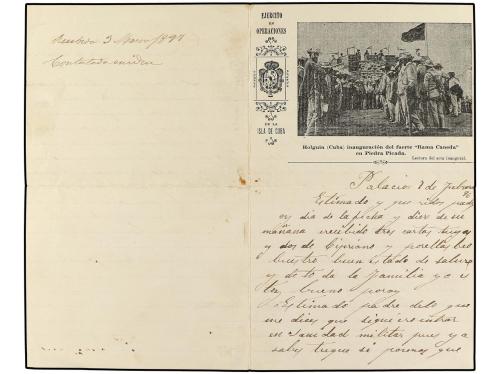 Recibida 3 Marzo 1897
Contestada en idem
EJERCITO
EN
OPERACIONES
DE LA
ISLA DE CUBA
Holguin (Cuba) inauguración del fuerte "Rama Caneda"
en Piedra Picada.
Lectura del acta inaugural.
Palacios 8 de Febrero
Estimado y queridos padres
dia de la fecha y diez de su
mañana recibido tres cartas suyas
y dos de Cipriano y por ellas beo
buestro buen estado de salud
y de to de la familia yo es
toy bueno por
Estimado padre delo que
me dices que si quiero entrar
en Sanidad militar pues ya
sabes que si que